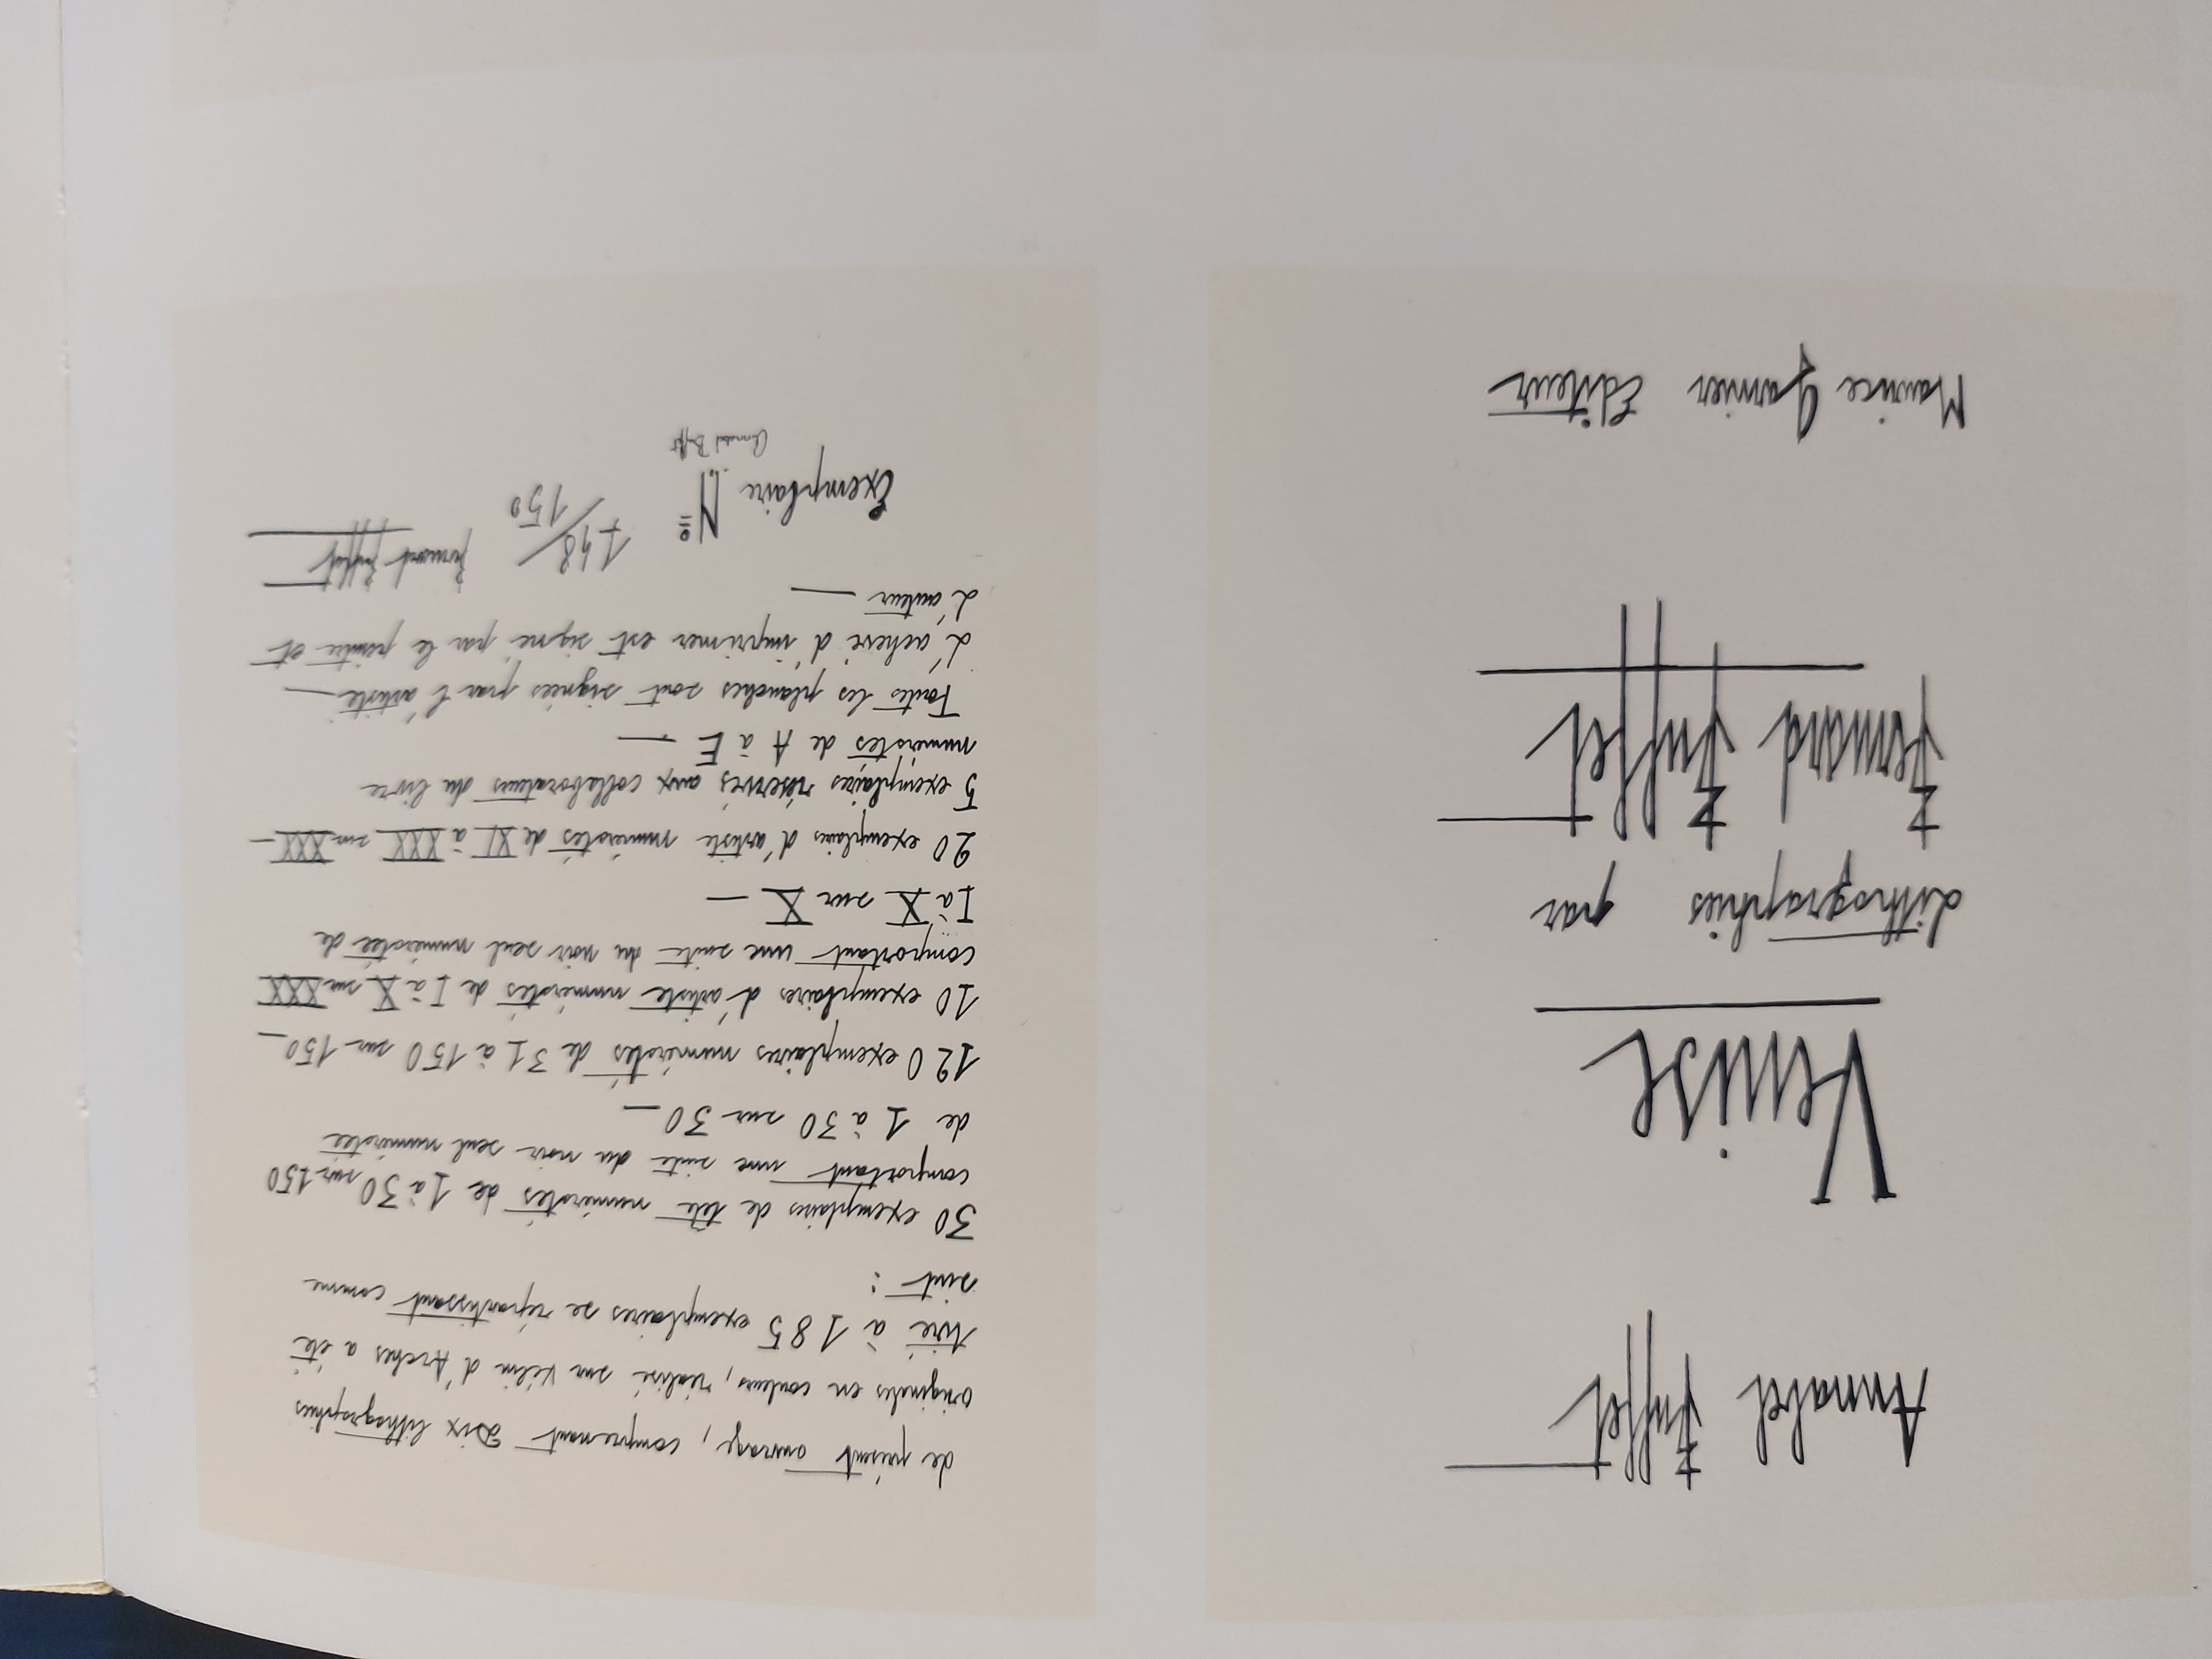 Annabel Buffet
Venise
Lithographies par
Bernard Buffet
Maurice Garnier Editeur
Le présent ouvrage, comprenant Dix lithographies
originales en couleurs, réalisé sur Vélin d'Arches a été
tiré à 185 exemplaires se répartissant comme
suit :
30 exemplaires de tête numérotés de 1 à 30 sur 150
comportant une suite du noir seul numérotée
de 1 à 30 sur 30 —
120 exemplaires numérotés de 31 à 150 sur 150 —
10 exemplaires d'artiste numérotés de I à X sur XXX
comportant une suite du noir seul numérotée de
I à X sur X —
20 exemplaires d'artiste numérotés de XI à XXX sur XXX —
5 exemplaires réservés aux collaborateurs du livre
numérotés de A à E —
Toutes les planches sont signées par l'artiste —
L'achevé d'imprimer est signé par le peintre et
L'auteur —
Exemplaire Nº 148/150 Bernard Buffet
Annabel Buffet